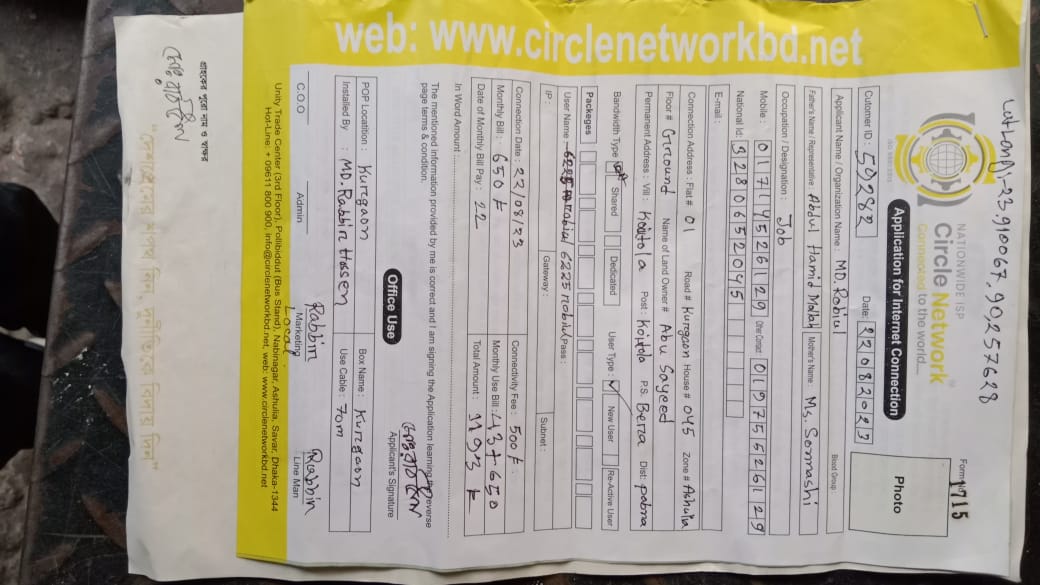 LatLong:-23.910067,90.257628
NATIONWIDE ISP
Circle Network
Connected to the world...
Form# 1715
Application for Internet Connection
Photo
Cutomer ID : 59282 Date: 22082023
Applicant Name / Organization Name : MD. Robiul Blood Group
Father's Name / Representative : Abdul Hamid Mollah Mother's Name : Ms. Sonnashi
Occupation / Designation : Job
Mobile : 01745526129 Other Contact 01975526129
National Id: 3280652045
E-mail :
Connection Address : Flat# 01 Road # Kurgaon House # 045 Zone # Ashulia
Floor# Ground Name of Land Owner # Abu Sayeed
Permanent Address : Vill : Koitola Post : Koitola P.S. Berra Dist: pabna
Bandwidth Type : Shared Dedicated User Type : ✓ New User Re-Active User
Packeges
User Name - robiul6225 Pass :
IP : Gateway : Subnet :
Connection Date : 22/08/23 Connectivity Fee : 500৳
Monthly Bill : 650৳ Monthly Use Bill : 43+650
Date of Monthly Bill Pay : 22 Total Amount : 1193৳
In Word Amount :
The mentioned information provided by me is correct and I am signing the Application learning the reverse
page terms & condition.
Applicant's Signature
Office Use
POP Locatition : Kurgaon Box Name : Kurgaon
Installed By : MD. Rabbir Hossen Use Cable : 70m
Rabbir Rabbir
Local
C.O.O Admin Marketing Line Man
Unity Trade Center (3rd Floor), Pollibiddut (Bus Stand), Nabinagar, Ashulia, Savar, Dhaka-1344
Hot-Line: + 09611 800 900, info@circlenetworkbd.net, web: www.circlenetworkbd.net
web: www.circlenetworkbd.net
গ্রাহকের পুরো নাম ও স্বাক্ষর